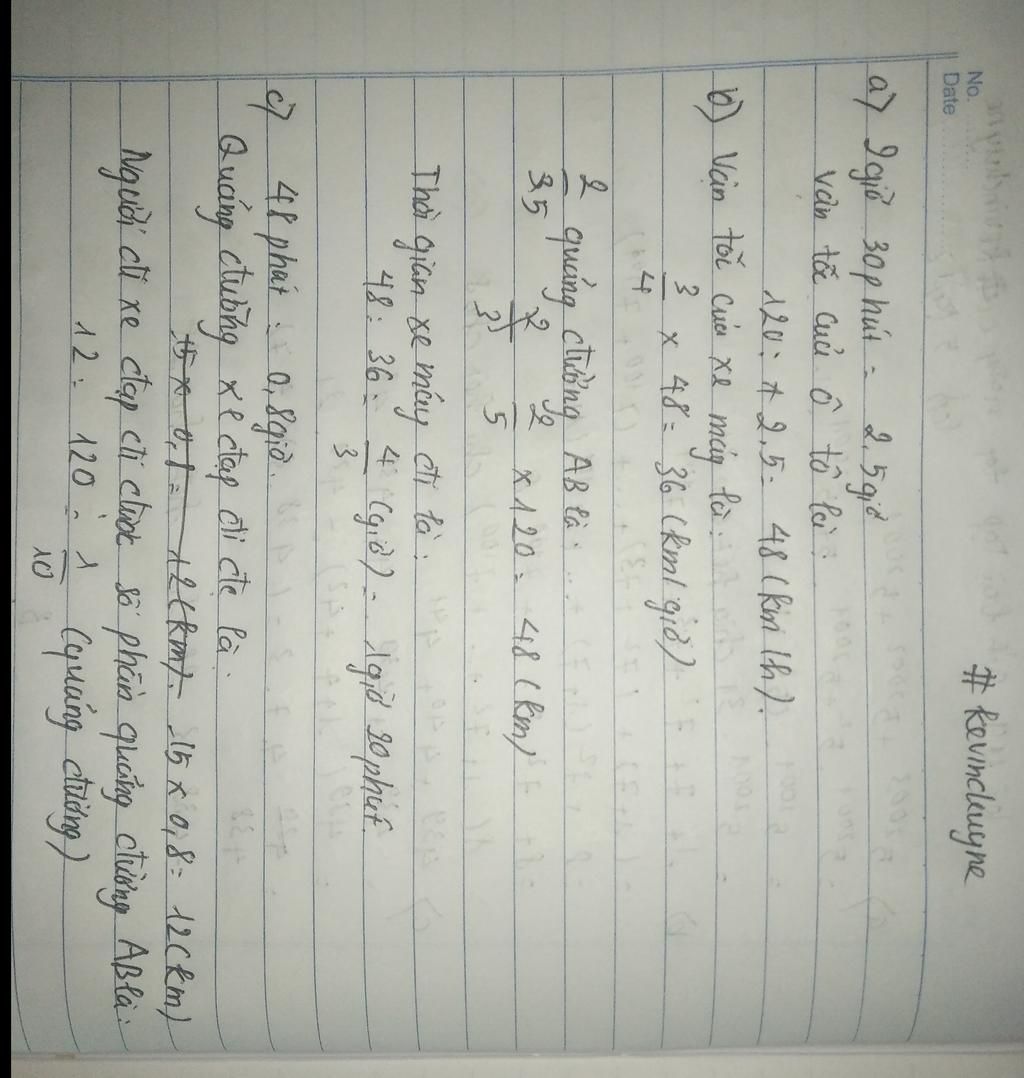 # kevinchuyne
No.
Date
a) 2 giờ 30 phút = 2,5 giờ
vận tốc của ô tô là:
120 : 2,5 = 48 (km/h).
b) Vận tốc của xe máy là:
3/4 x 48 = 36 (km/giờ)
2/5 quãng đường AB là:
2/5 x 120 = 48 (km)
Thời gian xe máy đi là:
48 : 36 = 4/3 (giờ) = 1 giờ 20 phút.
c) 48 phút = 0,8 giờ.
Quãng đường xe đạp đi đc là:
15 x 0,8 = 12 (km). 15 x 0,8 = 12 (km)
Người đi xe đạp đi được số phần quãng đường AB là:
12 : 120 = 1/10 (quãng đường)